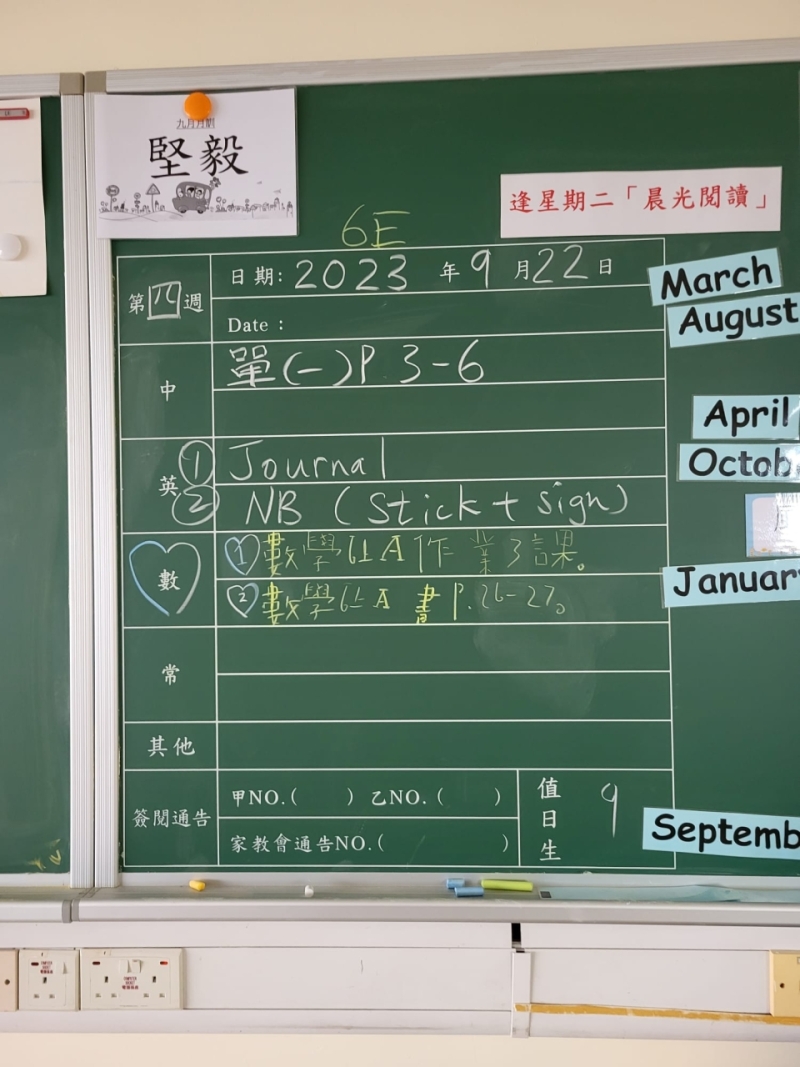 九月月訓
堅毅
逢星期二「晨光閱讀」
6E
第四週
日期: 2023 年 9 月 22 日
Date :
中
單(一)P.3-6
英
① Journal
② NB (Stick + sign)
數
① 數學6上A作業3課。
② 數學6上A書P.26-27。
常
其他
簽閱通告
甲NO.( ) 乙NO.( )
家教會通告NO.( )
值日生 9
March
August
April
Octob
Januar
Septemb